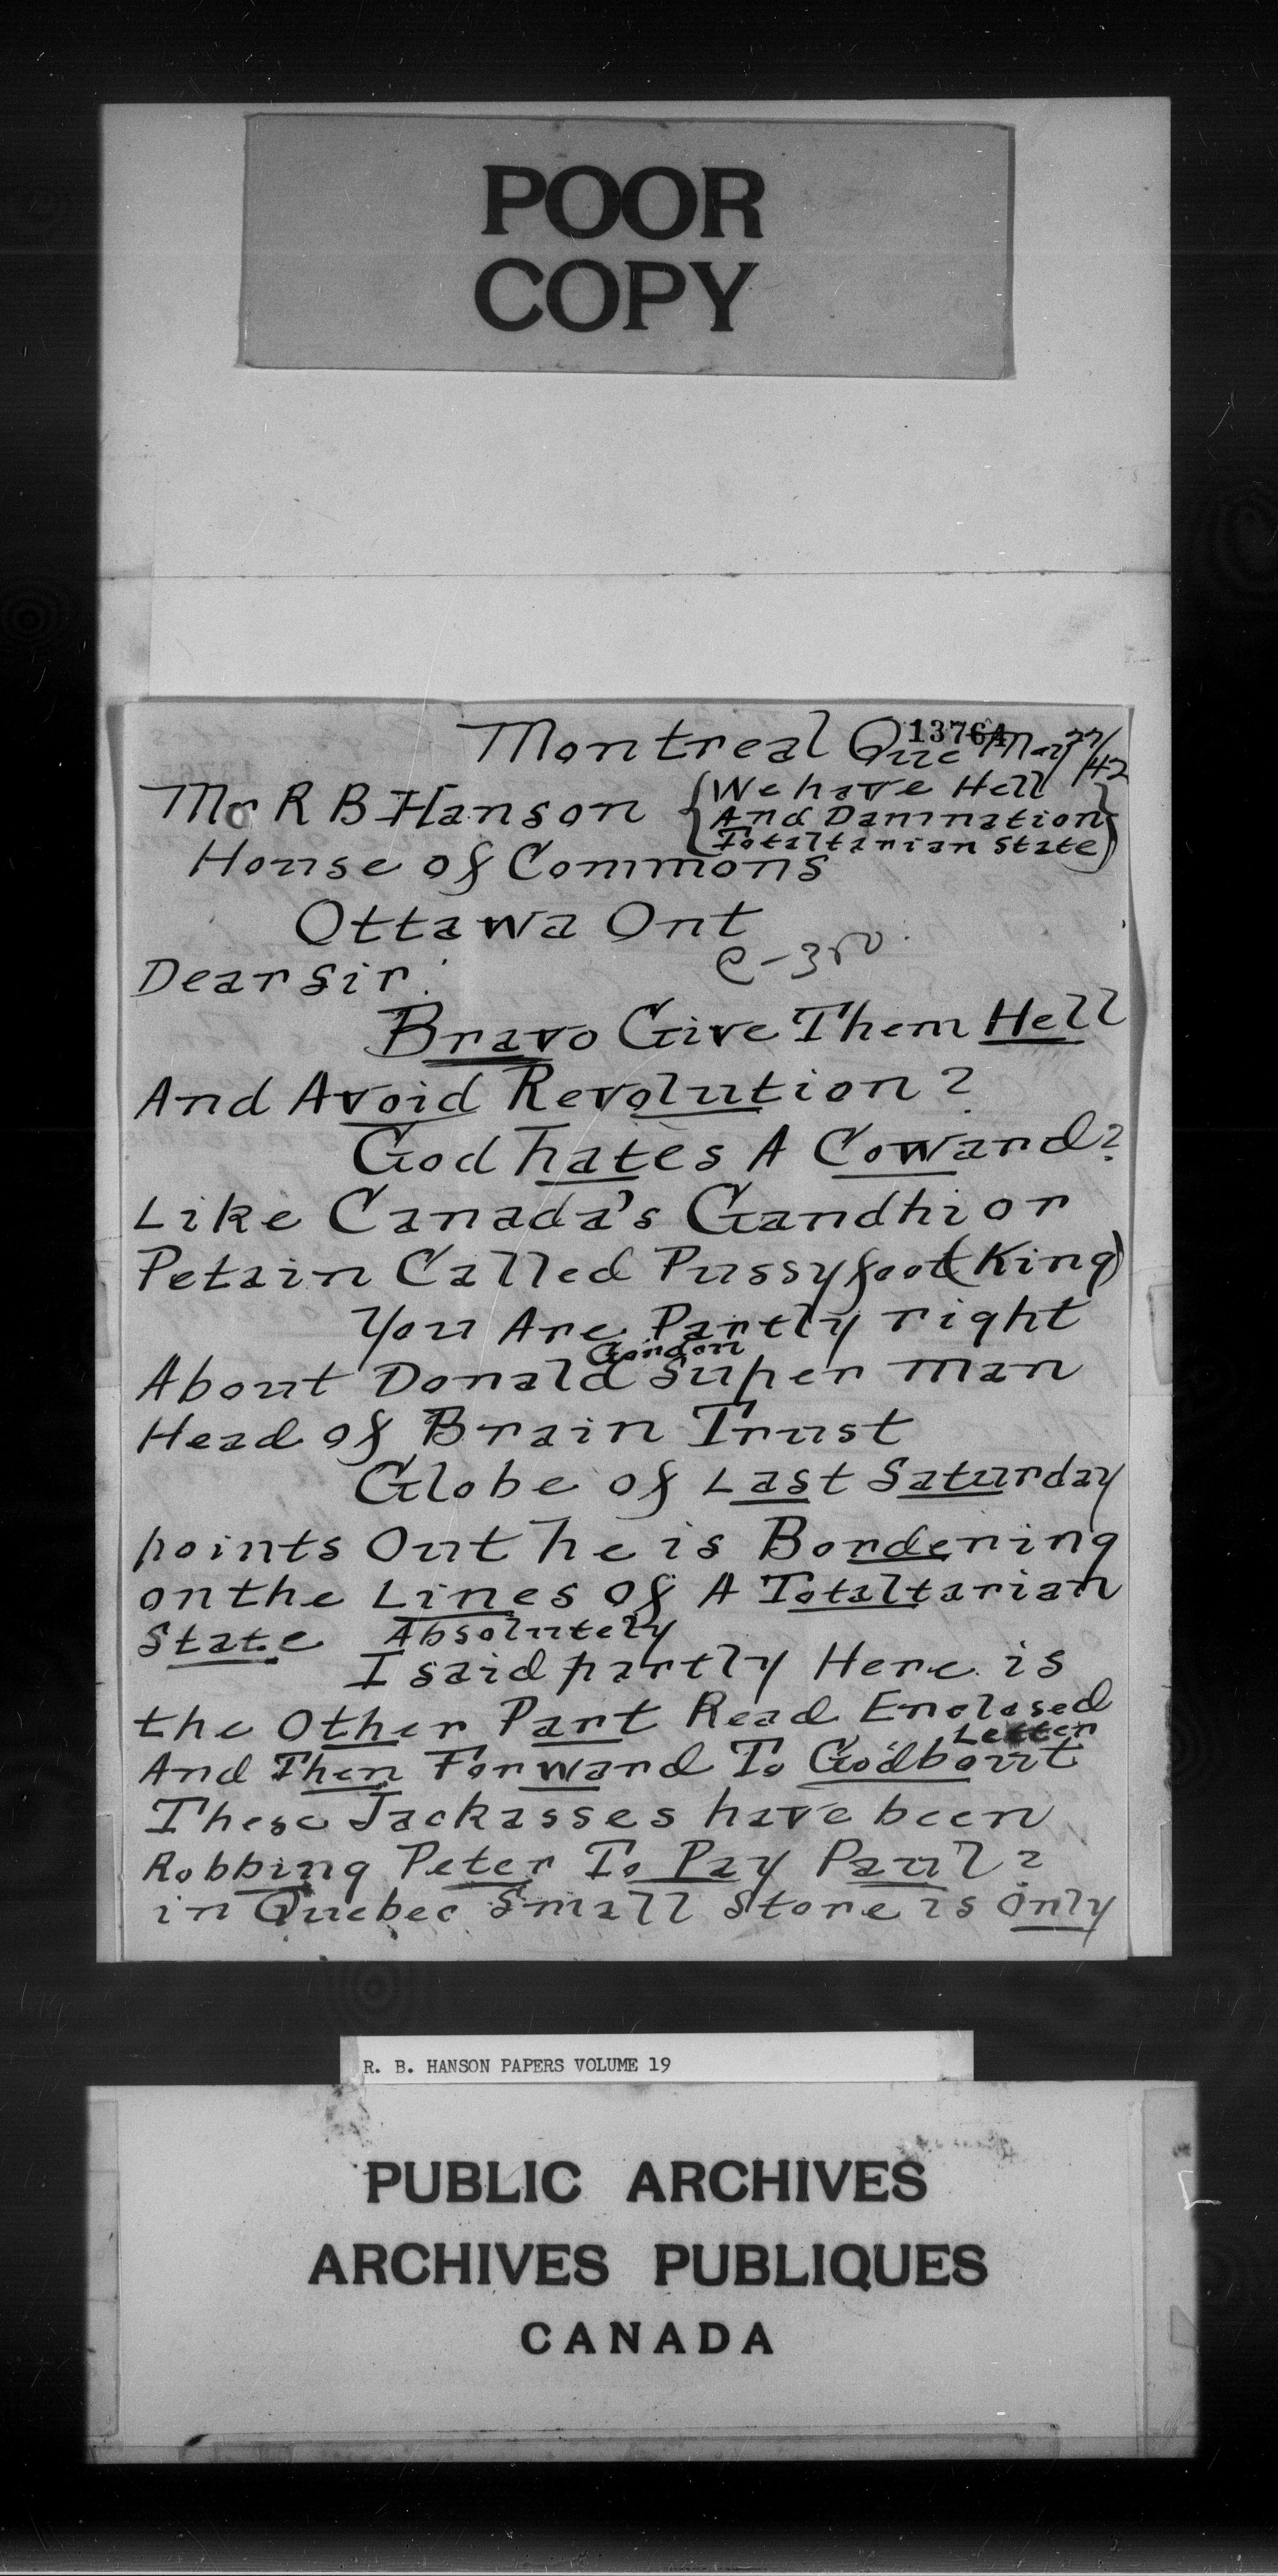 POOR
COPY
13764
Montreal Que May 27/42
Mr R B Hanson {We have Hell
And Damnation
Totaltarian State}
House of Commons
Ottawa Ont
Dear Sir:
Bravo Give Them Hell
And Avoid Revolution?
God hates A Coward?
Like Canada's Gandhi or
Petain Called Pussyfoot (King)
You Are Partly right
About Donald Gordon Super man
Head of Brain Trust
Globe of Last Saturday
points Out he is Bordering
on the Lines of A Totaltarian
State Absolutely
I said partly Here is
the Other Part Read Enclosed
Letter
And Then Forward To Godbout
These Jackasses have been
Robbing Peter To Pay Paul?
in Quebec Small Store is Only
R. B. HANSON PAPERS VOLUME 19
PUBLIC ARCHIVES
ARCHIVES PUBLIQUES
CANADA